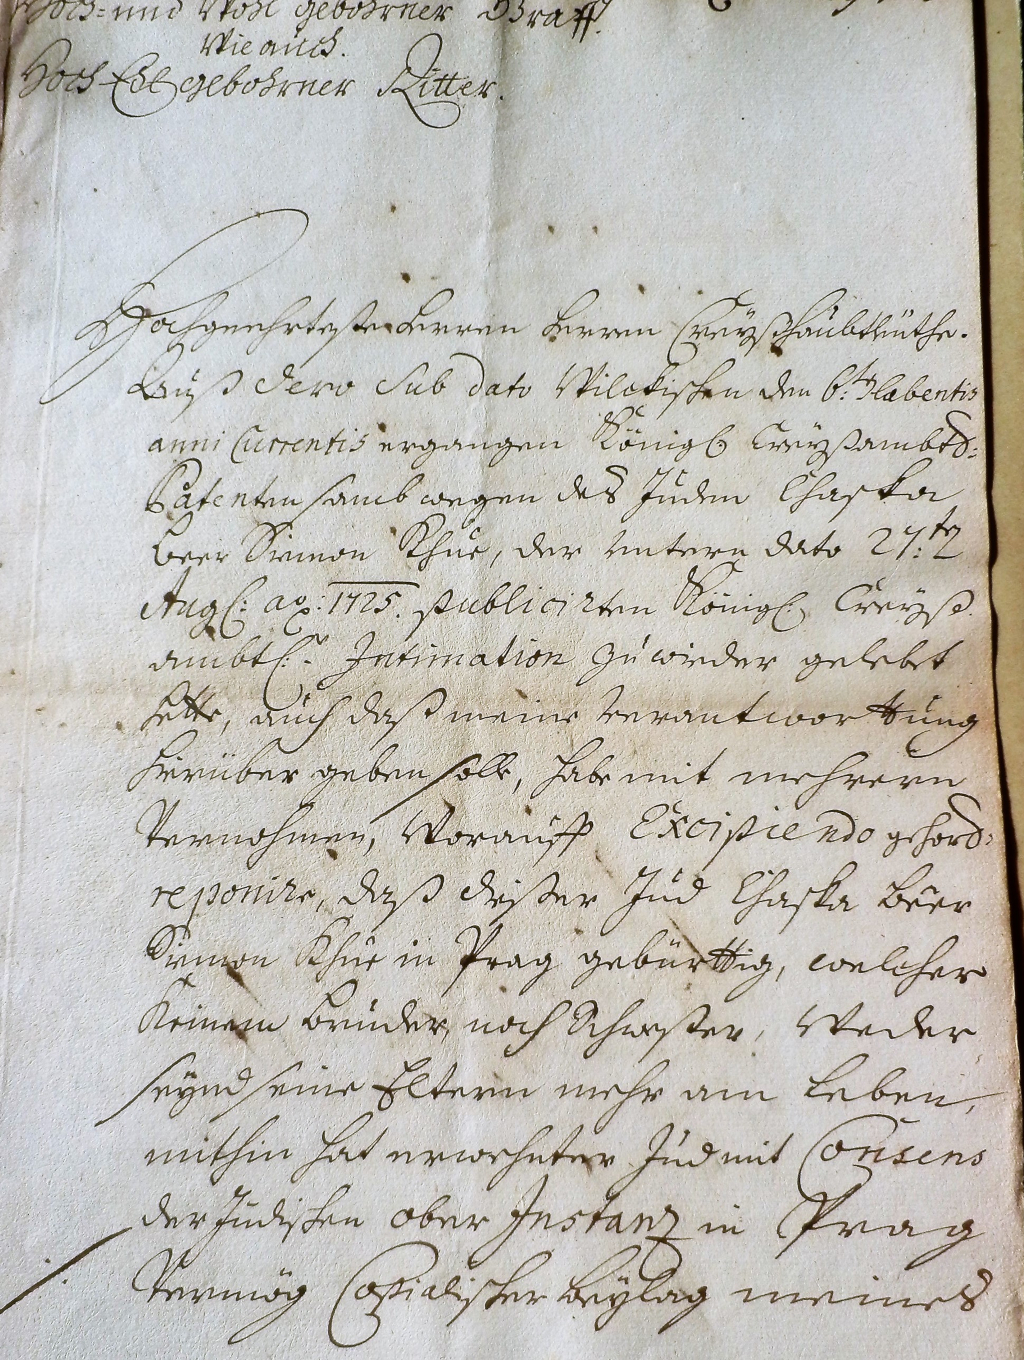 Hoch- und Wohl gebohrner Graff.
Wie auch.
Hoch Edl gebohrner Ritter.
Hochgeehrteste Herren Herren Creyßhaubtleuthe.
Auß dero sub dato Wilckischen den 6t: labentis
anni Currentis ergangen Königl Creyßambts=
Patenten samb wegen des Juden Chaska
Beer Simon Khue, der untern dato 27:t
Aug: ao: 1725. publicirten Königl: Creyß
ambtl: Intimation zuwieder gelebet
hette, auch daß meine verantworttung
hierüber geben solle, habe mit mehrern
vernohmen, Worauff Excipiendo gehors=
reponire, daß dießer Jud Chaska Beer
Simon Khue in Prag gebürttig, welcher
Keinem bruder, noch Schwester, Weder
seynd seine Eltern mehr am Leben,
mithin hat erwehnter Jud mit Consens
der Judischen ober Instanz in Prag
Vermög Copialischer beylag meines